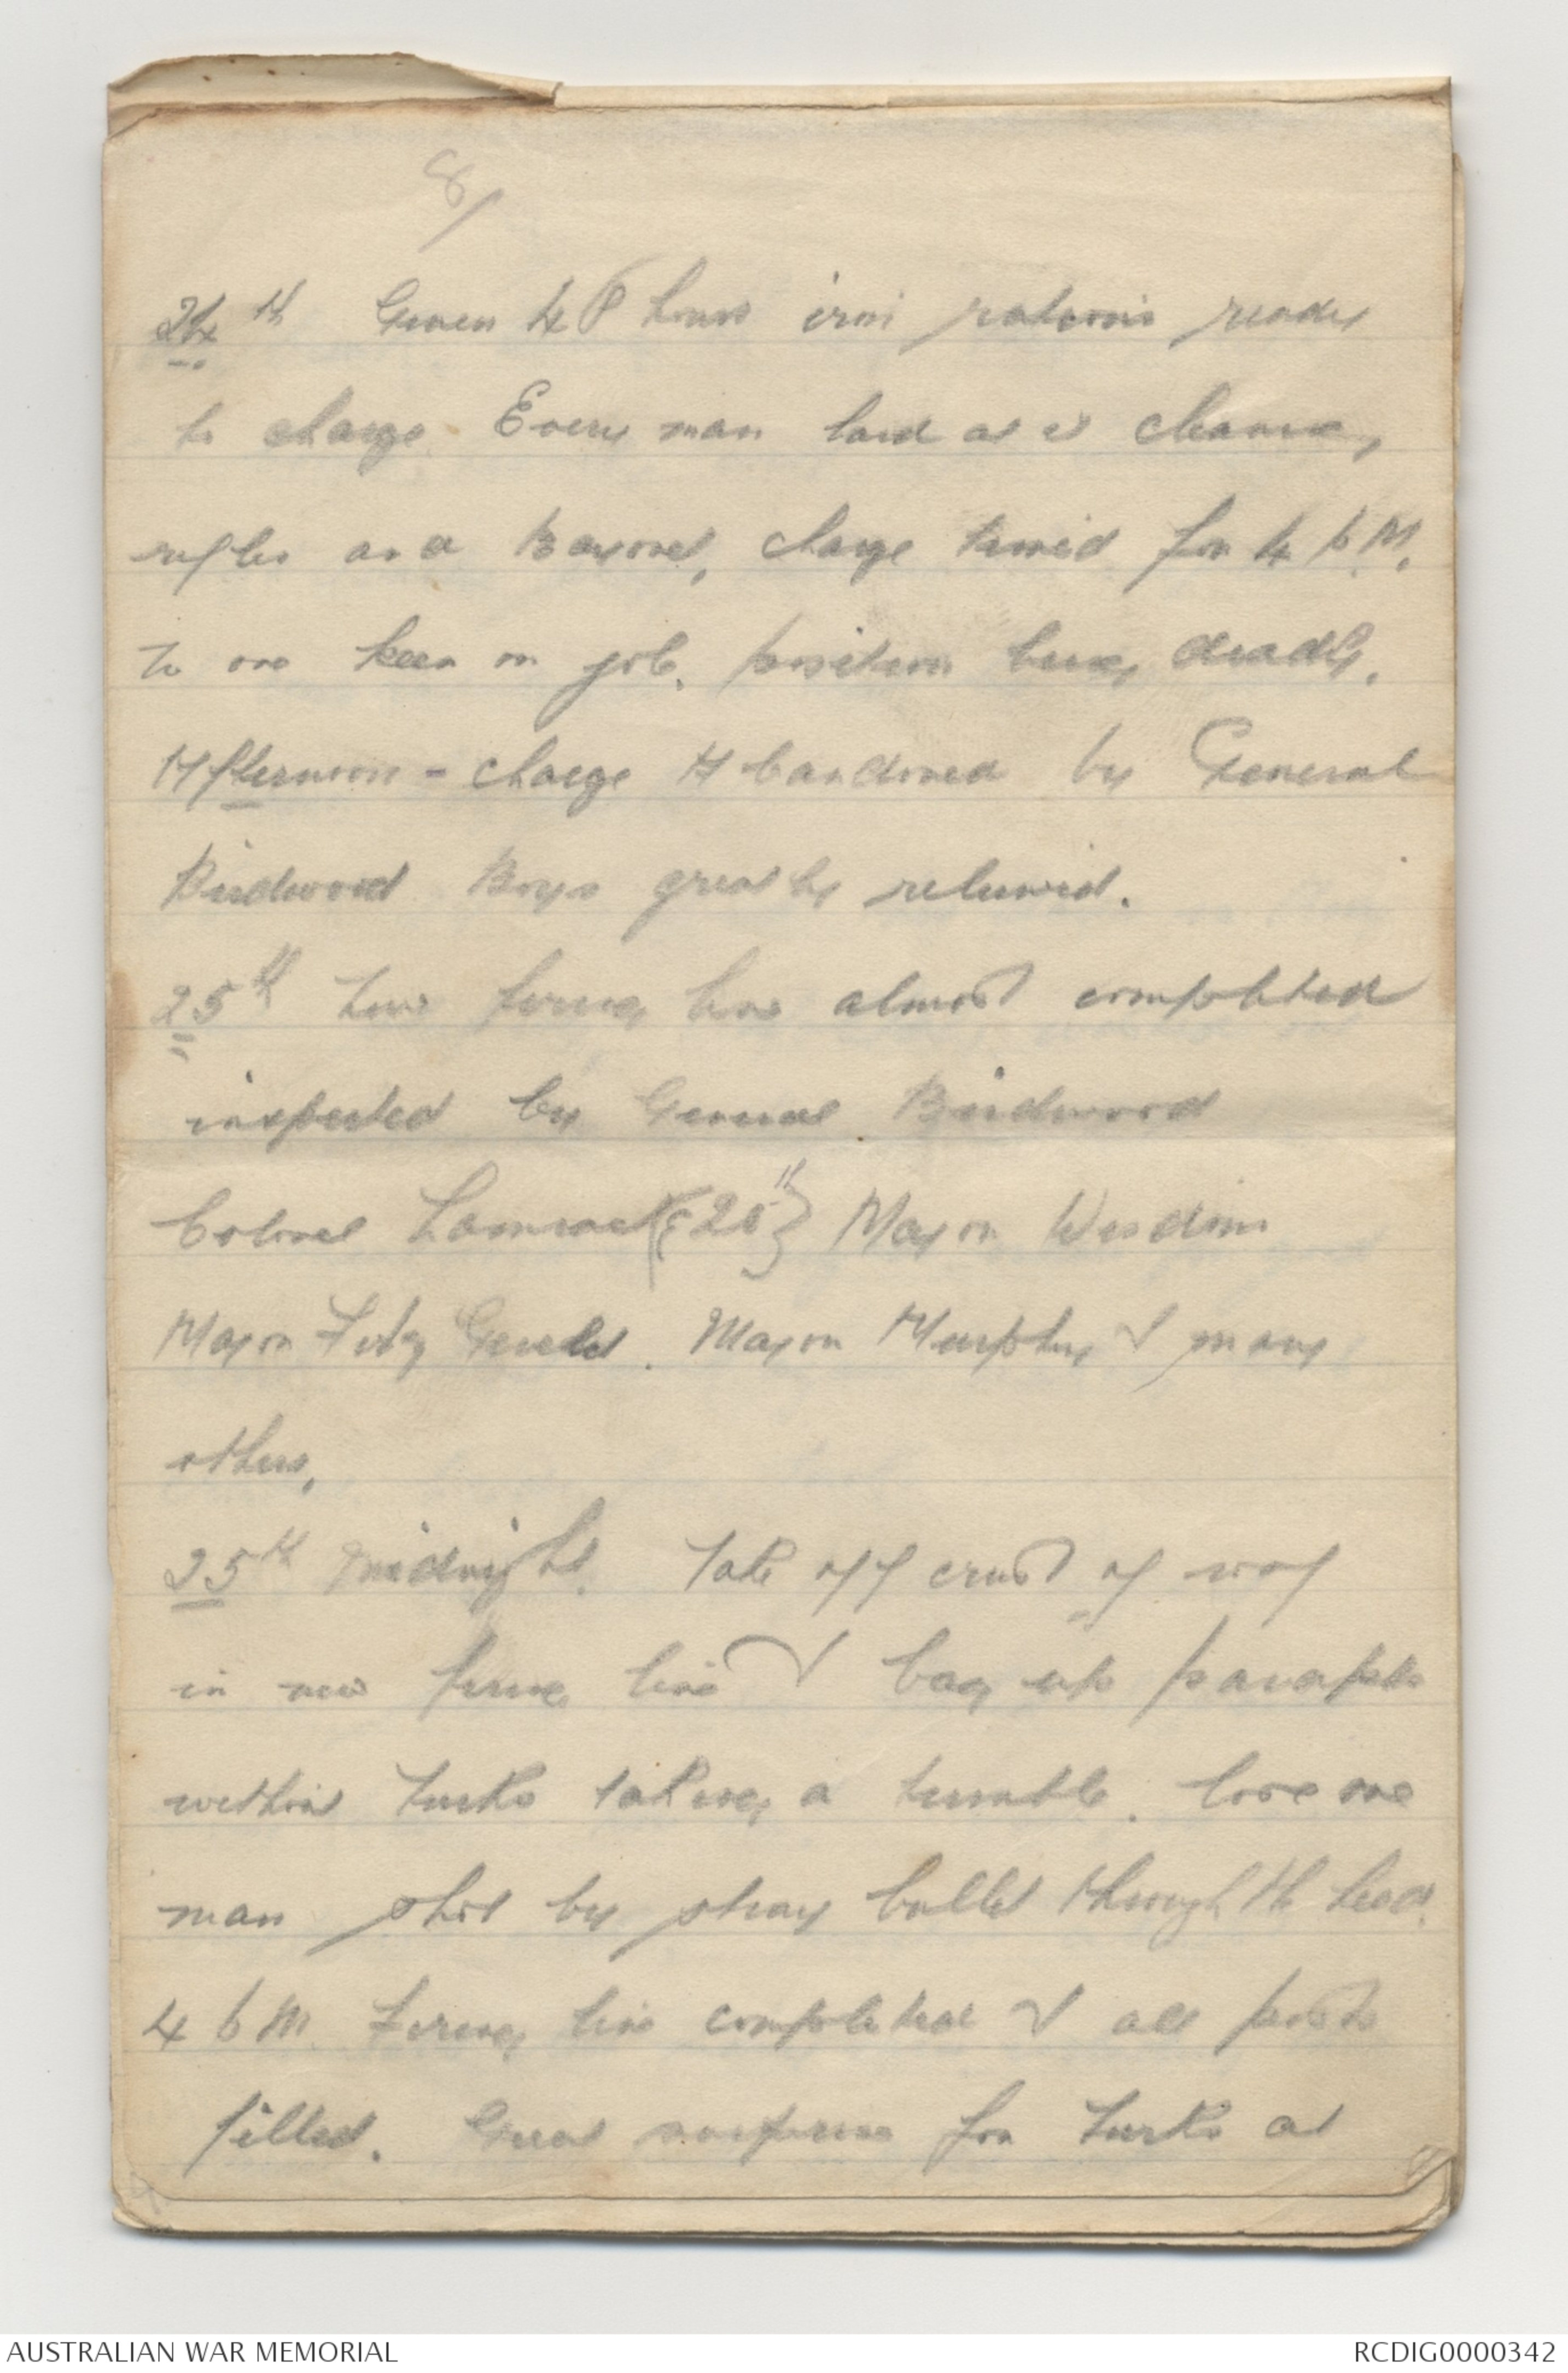 8/
24th Given 48 hours iron rations ready
to charge. Every man had at it cleaning
rifles and Bayonet, charge timed for 4 p.M.
keen on job, position being deadly.
Afternoon - charge Abandoned by General
Birdwood Boys greatly relieved.
25th firing line almost completed
inspected by General Birdwood
Colonel Lamrock {20th} Major Wisdom
Major Fitz Gerald. Major Murphy & many
others,
25th Midnight. Take off crust of roof
in new firing line & bag up parapets
without Turks taking a tumble. lose one
man shot by stray bullet through the head.
4 p M. Firing line completed & all posts
filled. Great surprise for Turks at
AUSTRALIAN WAR MEMORIAL
RCDIG0000342